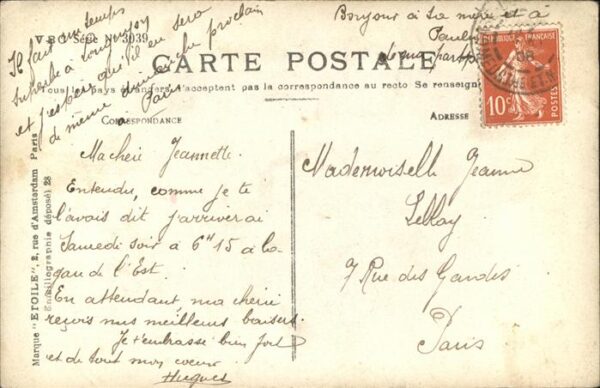 Il fait un temps
superbe à Longuyon
et j'espère qu'il en sera
de même dimanche prochain
à Paris
Bonjour à ta mère et à
V-BG Série No 3039
CARTE POSTALE
Tous les pays étrangers n'acceptent pas la correspondance au recto Se renseigner
CORRESPONDANCE
ADRESSE
RÉPUBLIQUE FRANÇAISE
10c
POSTES
Ma cherie Jeannette.
Entendu, comme je te
l'avais dit j'arriverai
Samedi soir à 6H 15 à la
gare de l'Est.
En attendant ma cherie
reçois mes meilleurs baisers.
Je t'embrasse bien fort
et de tout mon coeur
Hugues
Mademoiselle Jeanne
LeRay
7 Rue des Gardes
Paris
Marque "ETOILE", 2, rue d'Amsterdam Paris
(Photographie déposé) 28